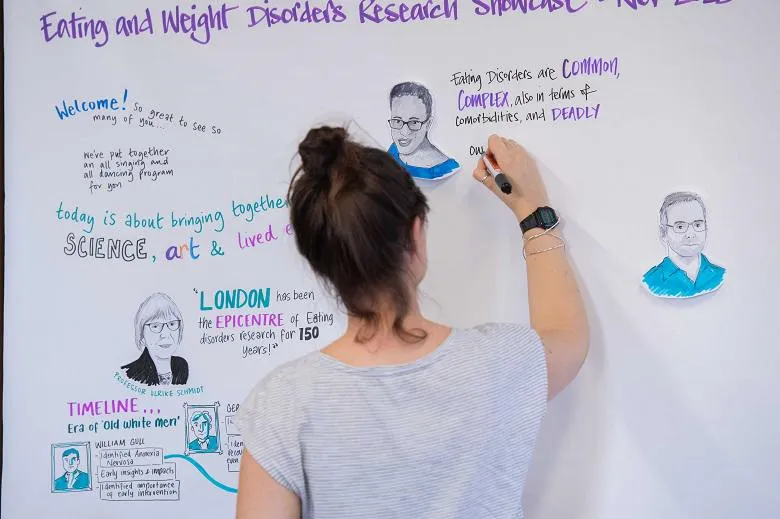 Eating and Weight Disorders Research Showcase - Nov
Welcome! So great to see so
many of you...
We've put together
an all singing and
all dancing program
for you
today is about bringing together
SCIENCE, art & lived
Eating Disorders are COMMON,
COMPLEX, also in terms of
comorbidities, and DEADLY
"LONDON has been
the EPICENTRE of Eating
disorders research for 150
Years!"
PROFESSOR ULRIKE SCHMIDT
TIMELINE...
Era of 'Old white men'
WILLIAM GULL
- Identified Anorexia
Nervosa
- Early insights & impacts
- Identified importance
of early intervention